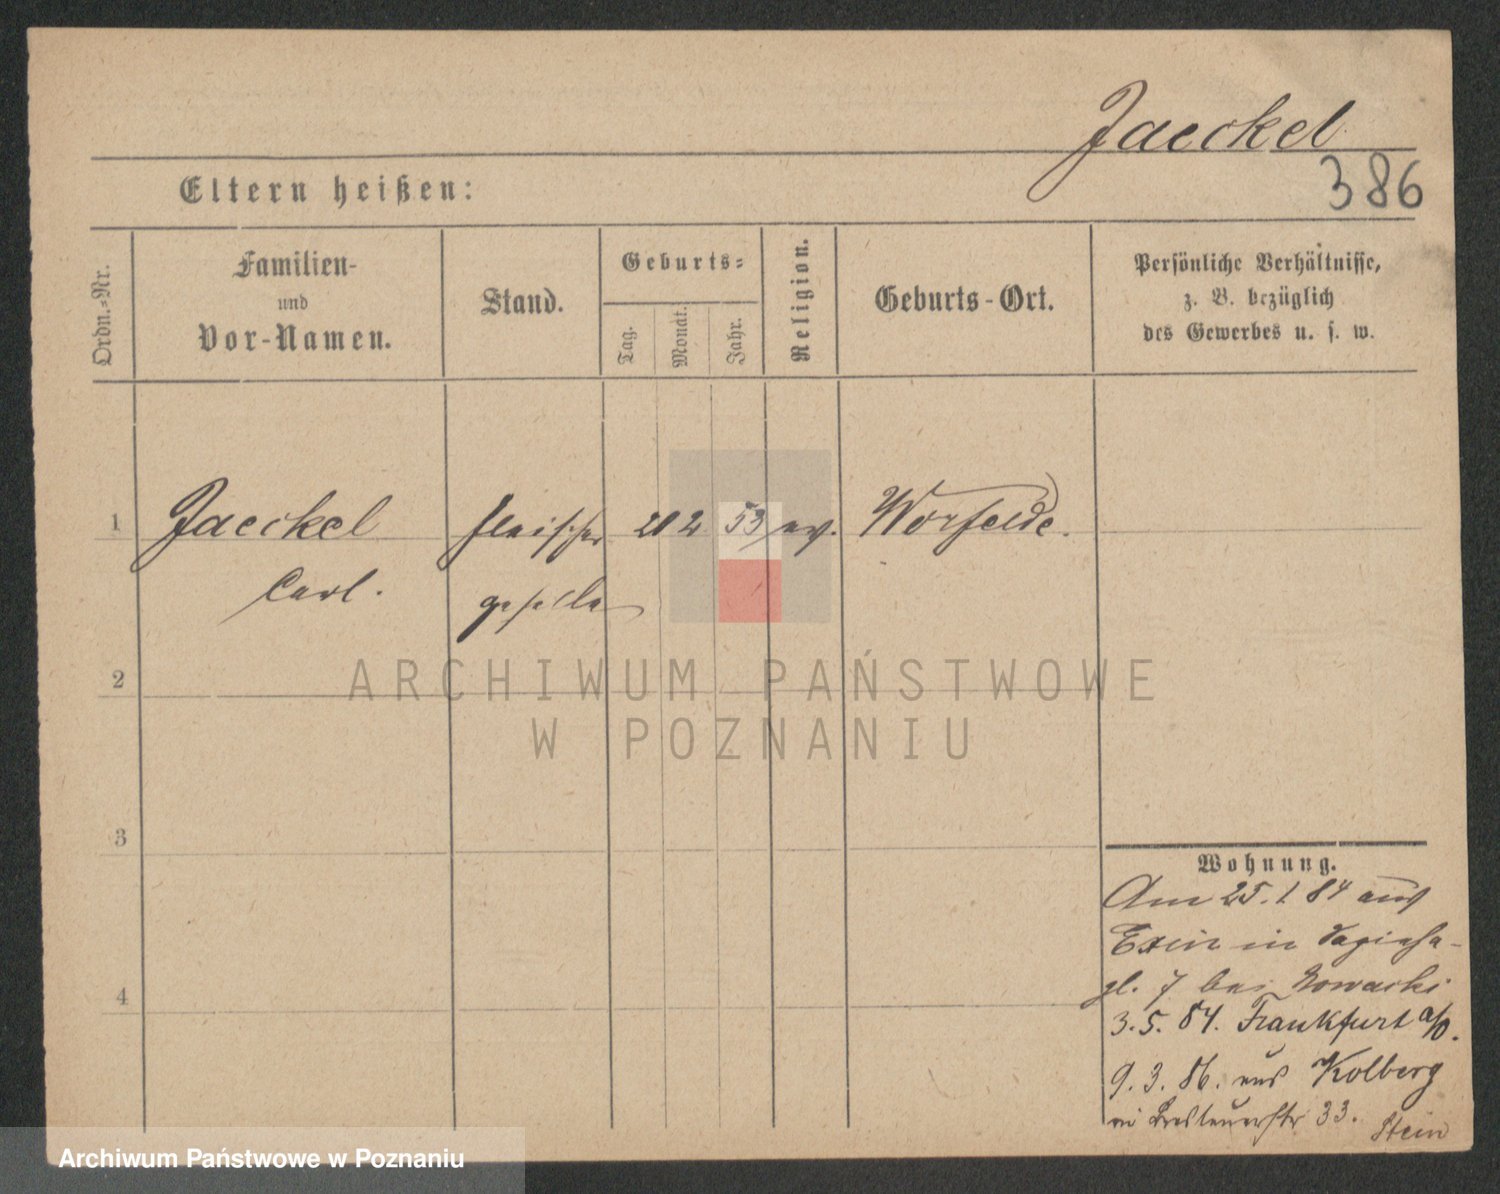 Jaeckel
386
Eltern heißen:
Ordn.-Nr.
Familien-
und
Vor-Namen.
Stand.
Geburts-
Tag.
Monat.
Jahr.
Religion.
Geburts-Ort.
Persönliche Verhältnisse,
z. B. bezüglich
des Gewerbes u. s. w.
1 Jaeckel Fleischer 2 53 ev. Worfelde.
Carl. geselle
2
3
4
Wohnung.
Am 25. 1 84 aus
Exin in
7 bei
3. 5. 84. Frankfurt a/O.
9. 3. 86. aus Kolberg
33. Stein
ARCHIWUM PAŃSTWOWE
W POZNANIU
Archiwum Państwowe w Poznaniu